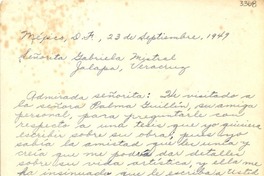 3368
México, D.F., 23 de Septiembre, 1949
Señorita Gabriela Mistral
Jalapa, Veracruz
Admirada señorita: He visitado a
la señora Palma Guillén, su amiga
personal, para preguntarle con
respecto a una tesis que yo quisiera
escribir sobre su obra; pues yo
sabía la amistad que las unía y
creía que me podría dar detalles
sobre su vida artística, y ella me
ha insinuado que le escribiera Usted